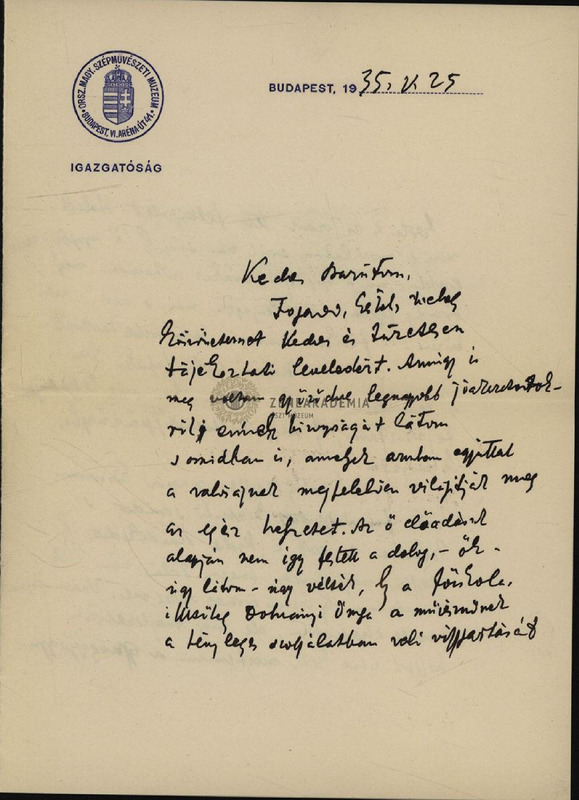 ORSZ. MAGY. SZÉPMŰVÉSZETI MÚZEUM
BUDAPEST, VI. ARÉNA-ÚT 41.
IGAZGATÓSÁG
BUDAPEST, 19 35. V. 25
Kedves Barátom,
Fogadd, kérlek, meleg
köszönetemet kedves és
tájékoztató leveledért. Amúgy is
meg voltam győződve legnagyobb
ennek bizonyságát látom
soraidban is, amelyek azonban egyúttal
a valóságnak megfelelően világítják meg
az egész helyzetet. Az ő előadásuk
alapján nem így festett a dolog, - ők -
úgy látom - úgy vélték, hogy a főiskola,
illetőleg Dohnányi
a tényleges szolgálatban való
ZENEAKADEMIA
LISZT MÚZEUM